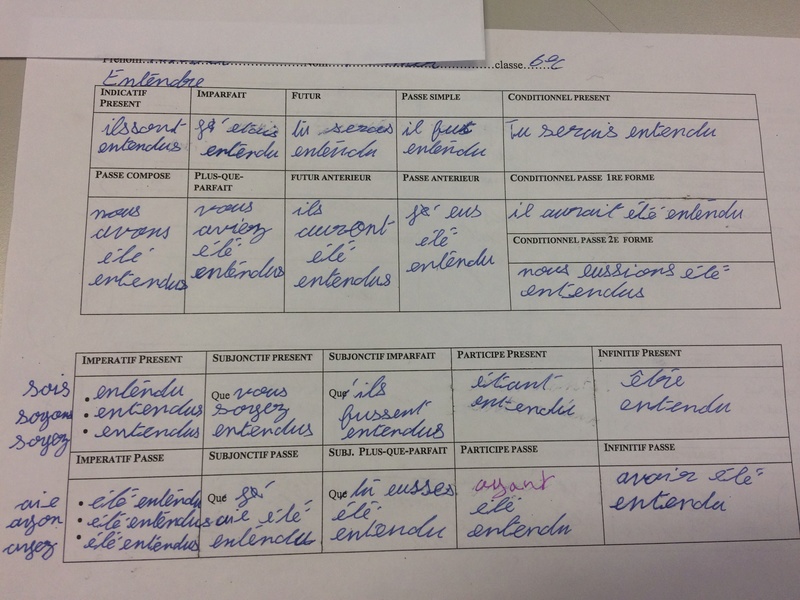 Prénom Nom classe 6e
Entendre
INDICATIF PRESENT IMPARFAIT FUTUR PASSE SIMPLE CONDITIONNEL PRESENT
ils sont entendus
j'étais entendu
tu seras entendu
il fut entendu
Tu serais entendu
PASSE COMPOSE PLUS-QUE-PARFAIT FUTUR ANTERIEUR PASSE ANTERIEUR CONDITIONNEL PASSE 1RE FORME
nous avons été entendus
vous aviez été entendus
ils auront été entendus
j'eus été entendu
il aurait été entendu
CONDITIONNEL PASSE 2E FORME
nous eussions été entendus
IMPERATIF PRESENT SUBJONCTIF PRESENT SUBJONCTIF IMPARFAIT PARTICIPE PRESENT INFINITIF PRESENT
sois • entendu
soyons • entendus
soyez • entendus
Que vous soyez entendus
Qu'ils fussent entendus
étant entendu
être entendu
IMPERATIF PASSE SUBJONCTIF PASSE SUBJ. PLUS-QUE-PARFAIT PARTICIPE PASSE INFINITIF PASSE
aie • été entendu
ayon • été entendus
ayez • été entendus
Que j'aie été entendu
Que tu eusses été entendu
ayant été entendu
avoir été entendu